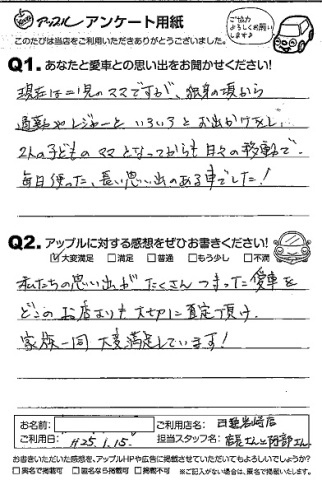 アップル アンケート用紙
このたびは当店をご利用いただきありがとうございました。
ご協力
よろしくお願い
します
Q1. あなたと愛車との思い出をお聞かせください!
現在は二児のママですが、独身の頃から
通勤やレジャーと いろいろとお出かけをし、
2人の子どものママとなってからも日々の移動で
毎日使った、長い思い出のある車でした!
Q2. アップルに対する感想をぜひお書きください!
☑大変満足 □満足 □普通 □もう少し □不満
私たちの思い出がたくさんつまった愛車を
どこのお店よりも大切に査定して頂け、
家族一同 大変満足しています!
お名前:
ご利用店名:
ご利用日: H25.1.15.
担当スタッフ名: 店長さんと阿部さん
お書きいただいた感想を、アップルHPや広告に掲載させていただいてもよろしいでしょうか?
□実名で掲載可 □匿名なら掲載可 □掲載不可 ※ご記入がない場合は、匿名で掲載いたします。